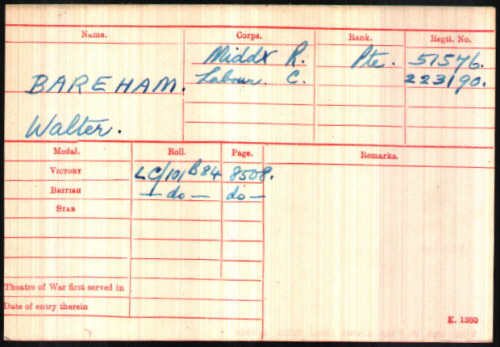 Name. Corps. Rank. Regtl. No.
Middx R. Pte. 51576.
BAREHAM. Labour. C. 223190.
Walter.
Medal. Roll. Page. Remarks.
VICTORY LC/101 B84 8508.
BRITISH — do — do —
STAR
Theatre of War first served in
Date of entry therein
K. 1380